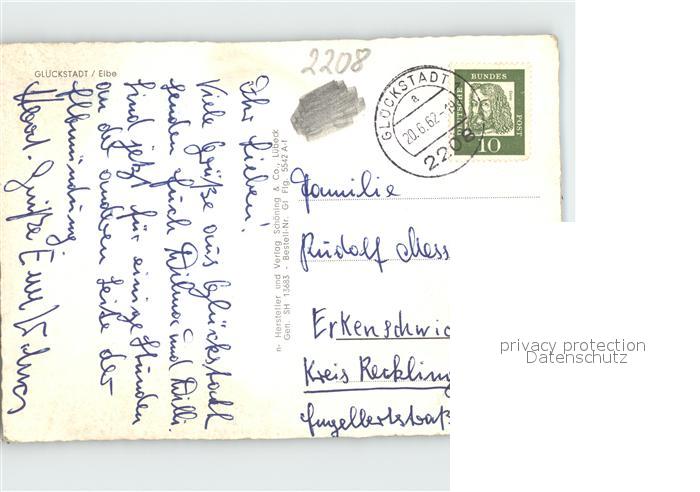 GLÜCKSTADT / Elbe
2208
Ihr Lieben!
Viele Grüße aus Glückstadt
senden Euch Wilma und Willi.
Sind jetzt für einige Stunden
an der anderen Seite der
Elbmündung.
Herzl. Grüße
n- Hersteller und Verlag Schöning & Co., Lübeck
Gen. SH 13683 - Bestell-Nr. Gl Flg. 5542 A-f
GLÜCKSTADT
a
20.6.62-18
2208
DEUTSCHE BUNDES POST
10
Familie
Rudolf Mess
Erkenschwic
Kreis Reckling
Engelbertstraß
privacy protection
Datenschutz